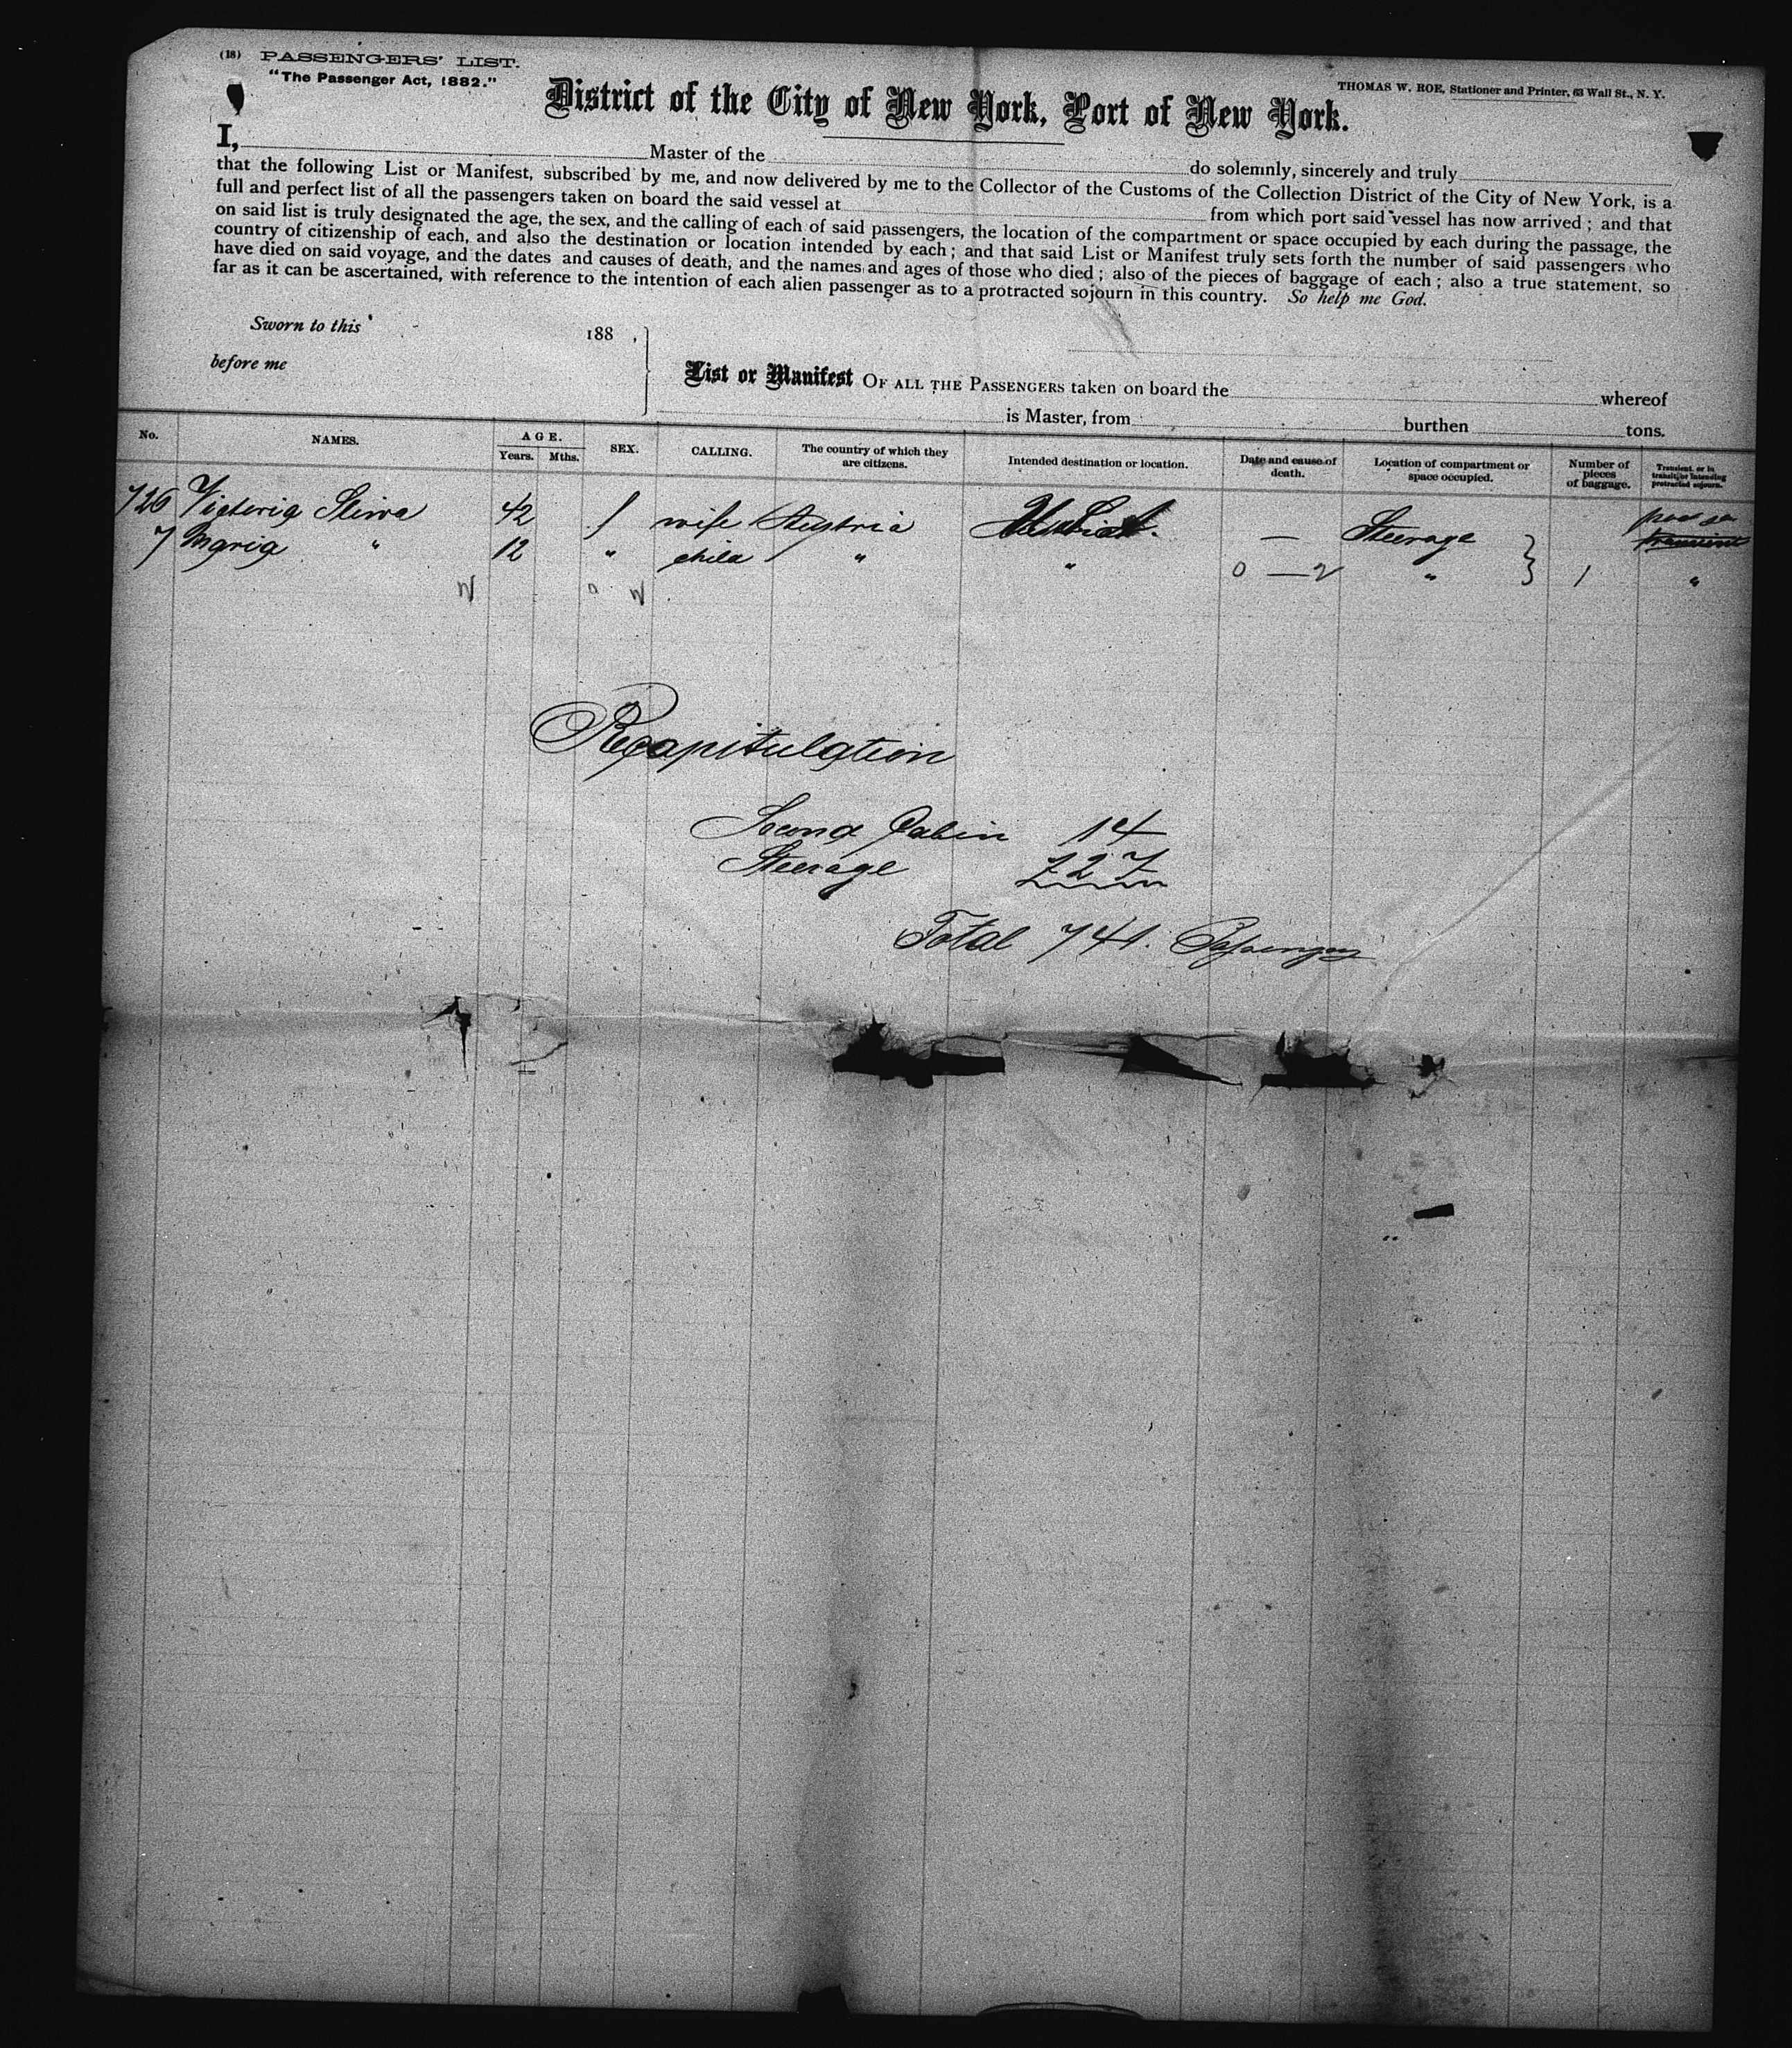 (18) PASSENGERS' LIST.
"The Passenger Act, 1882."
THOMAS W. ROE, Stationer and Printer, 63 Wall St., N. Y.
District of the City of New York, Port of New York.
I, Master of the do solemnly, sincerely and truly
that the following List or Manifest, subscribed by me, and now delivered by me to the Collector of the Customs of the Collection District of the City of New York, is a
full and perfect list of all the passengers taken on board the said vessel at from which port said vessel has now arrived; and that
on said list is truly designated the age, the sex, and the calling of each of said passengers, the location of the compartment or space occupied by each during the passage, the
country of citizenship of each, and also the destination or location intended by each; and that said List or Manifest truly sets forth the number of said passengers who
have died on said voyage, and the dates and causes of death, and the names and ages of those who died; also of the pieces of baggage of each; also a true statement, so
far as it can be ascertained, with reference to the intention of each alien passenger as to a protracted sojourn in this country. So help me God.
Sworn to this 188 ,
before me
List or Manifest OF ALL THE PASSENGERS taken on board the whereof
is Master, from burthen tons.
No. NAMES. AGE. Years. Mths. SEX. CALLING. The country of which they are citizens. Intended destination or location. Date and cause of death. Location of compartment or space occupied. Number of pieces of baggage. Transient, or in transit, or intending protracted sojourn.
726 Victoria 42 f wife Austria — Steerage transient
7 Maria " 12 " child " " 0 — 2 " 1 "
Recapitulation
Second Cabin 14
Steerage 727
Total 741. Passengers